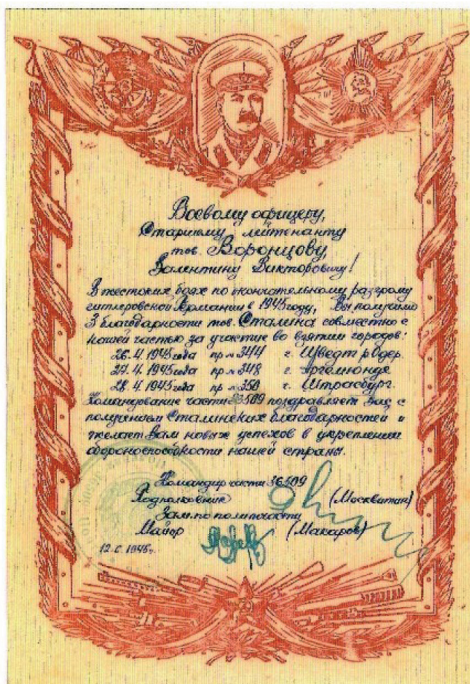 Боевому офицеру,
Старшему лейтенанту
тов. Воронцову
Валентину Викторовичу!
В жестоких боях по окончательному разгрому
гитлеровской Германии в 1945 году, Вы получили
3 благодарности тов. Сталина совместно с
нашей частью за участие во взятии городов:
26.4 1945 года пр № 344 г. Шведт р Одер.
27.4 1945 года пр № 348 г.
28.4 1945 года пр № 350 г. Штрасбург.
Командование части 36509 поздравляет Вас с
получением Сталинских благодарностей и
желает Вам новых успехов в укреплении
обороноспособности нашей страны.
Командир части 36509
Подполковник (Москвитин)
Зам. по политчасти
Майор (Макаров)
1945г.